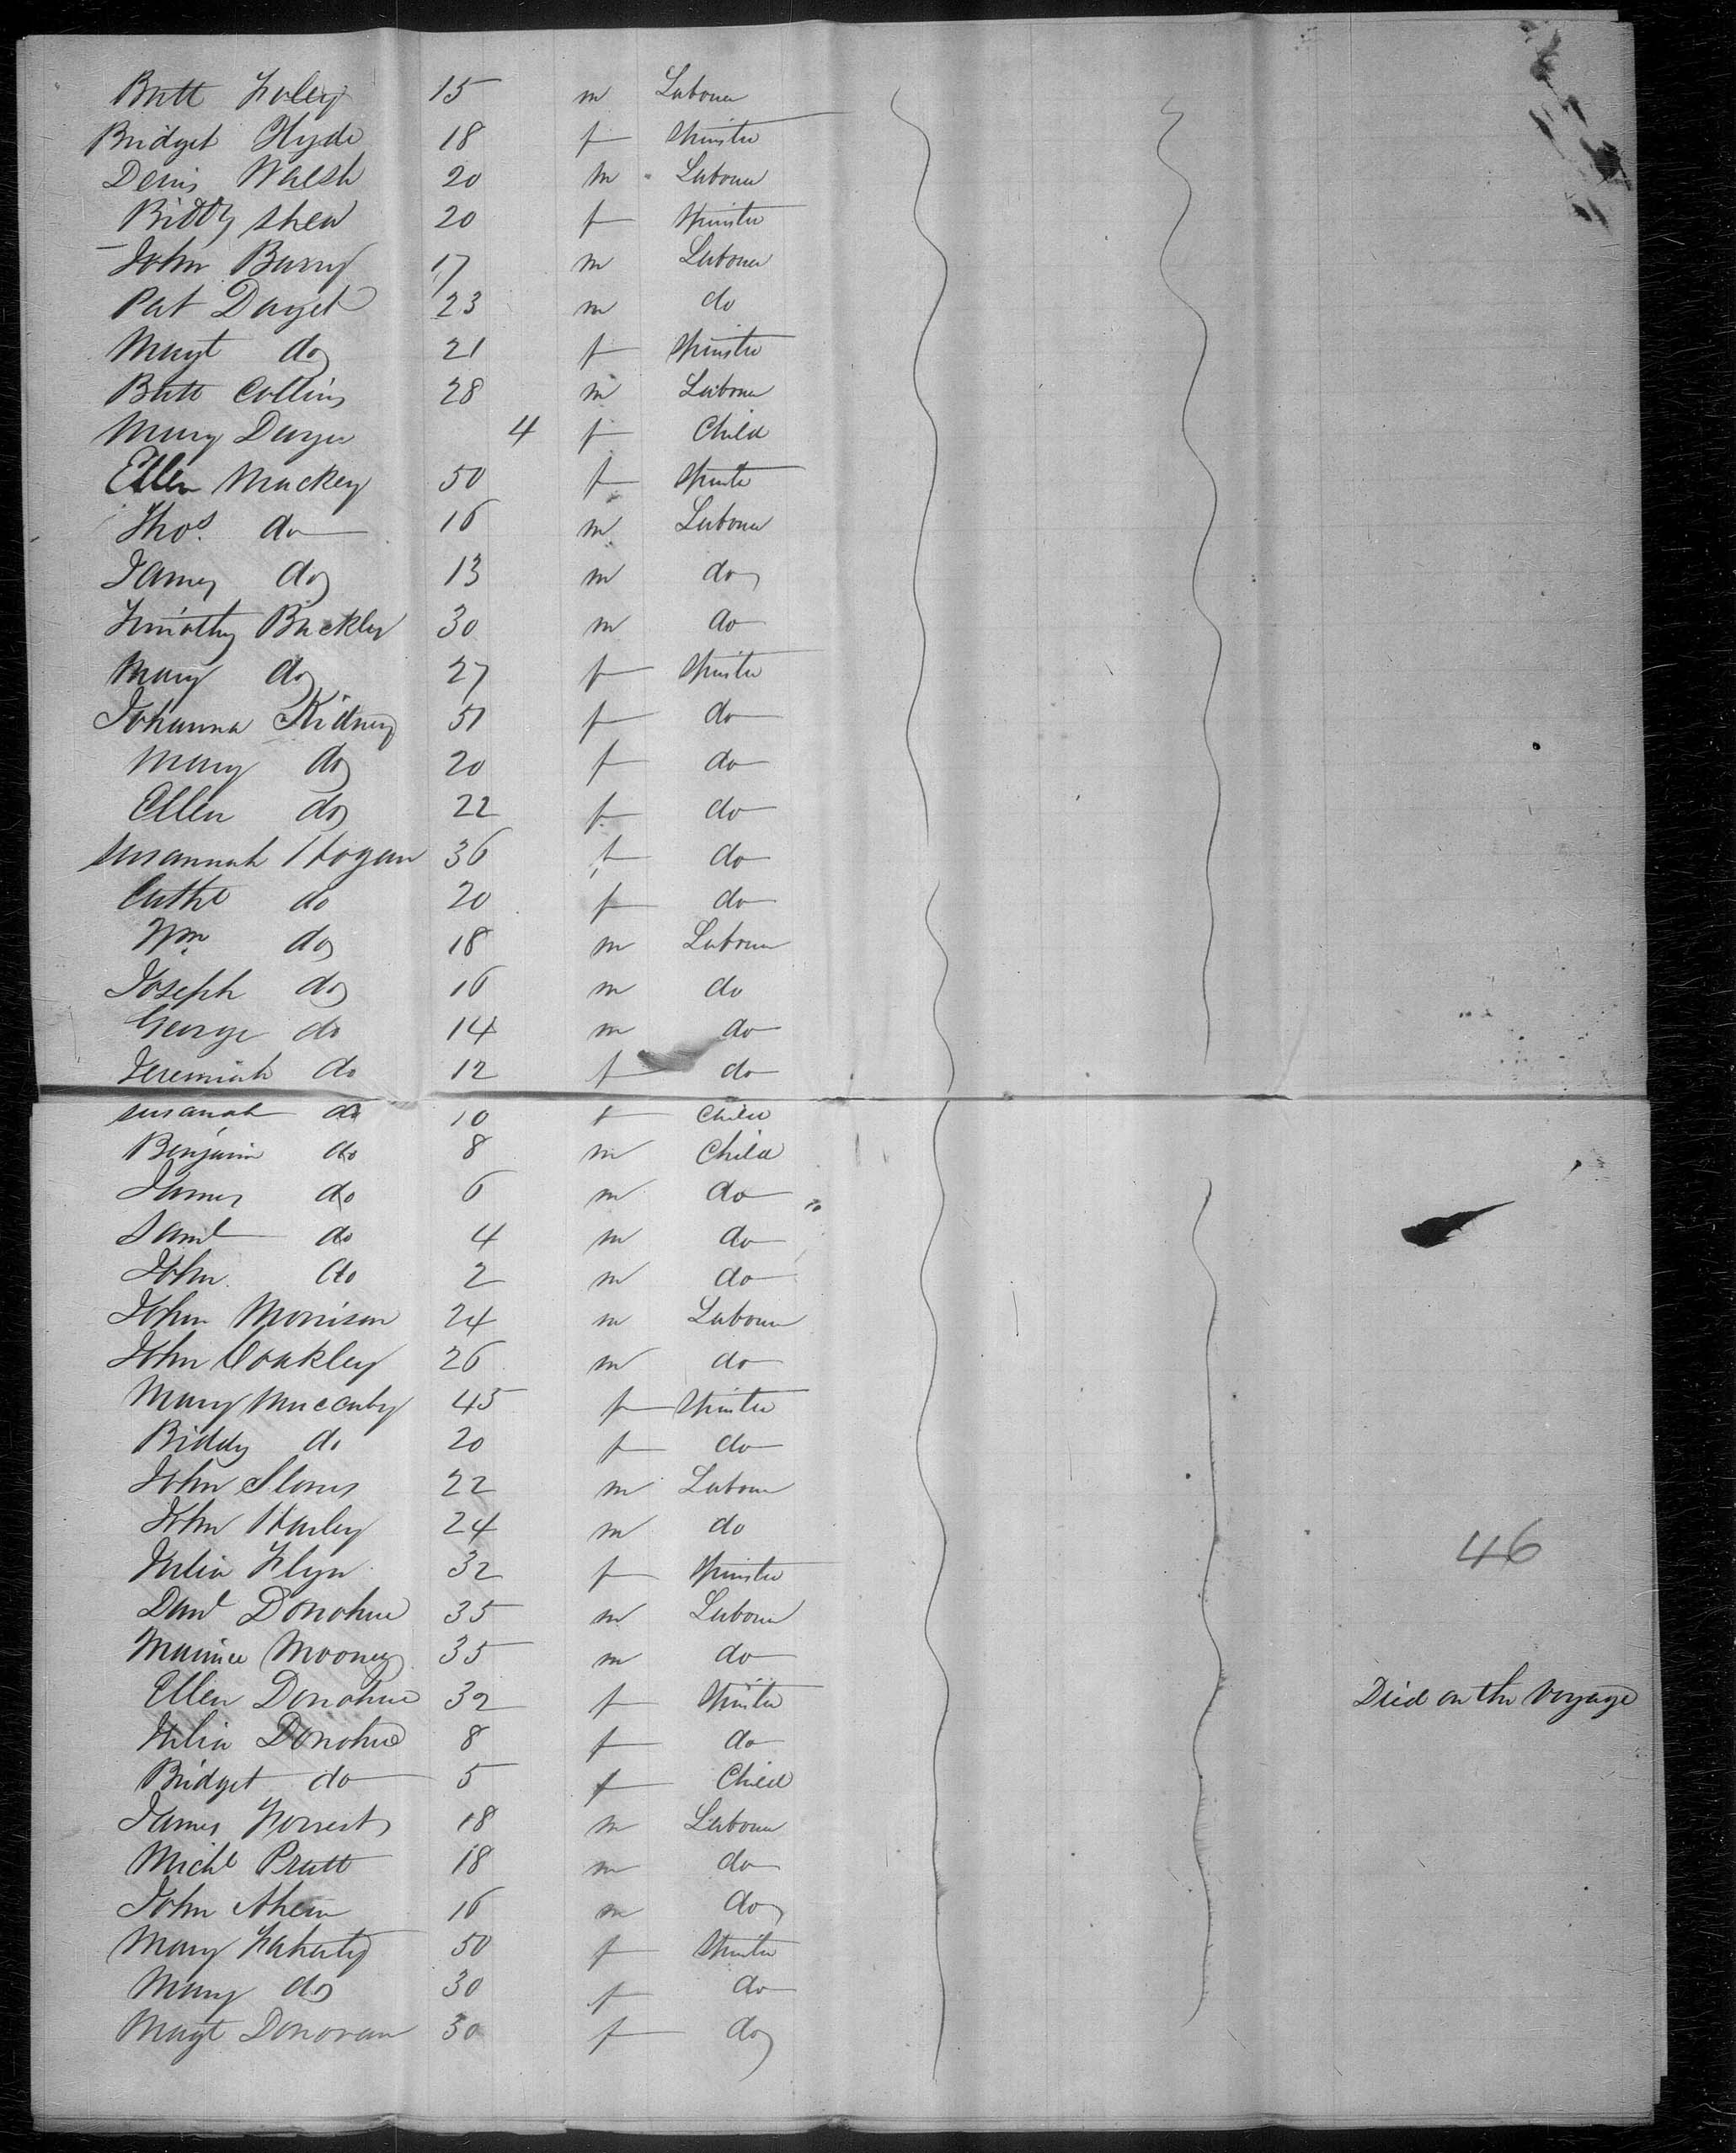 Batt Foley 15 m Labourer
Bridget Hyde 18 f Spinster
Denis Walsh 20 m Labourer
Biddy Shea 20 f Spinster
John Barry 17 m Labourer
Pat 23 m do
Margt do 21 f Spinster
Batt Collins 28 m Labourer
Mary Dwyer 4 f Child
Ellen Mackey 50 f Spinster
Thos. do 16 m Labourer
James do 13 m do
Timothy Buckley 30 m do
Mary do 27 f Spinster
Johanna Kidney 51 f do
Mary do 20 f do
Ellen do 22 f do
Susannah Hogan 36 f do
Cathe do 20 f do
Wm do 18 m Labourer
Joseph do 16 m do
George do 14 m do
Jeremiah do 12 f do
Susanah do 10 f Child
Benjamin do 8 m Child
James do 6 m do
Saml do 4 m do
John do 2 m do
John Morrison 24 m Labourer
John Coakley 26 m do
Mary 45 f Spinster
Biddy do 20 f do
John 22 m Labourer
John Harley 24 m do
46
Julia Flyn 32 f Spinster
Danl Donohue 35 m Labourer
Maurice Mooney 35 m do
Ellen Donohue 32 f Spinster Died on the Voyage
Julia Donohue 8 f do
Bridget do 5 f Child
James Forrest 18 m Labourer
Michl Pratt 18 m do
John Ahern 16 m do
Mary Faherty 50 f Spinster
Mary do 30 f do
Margt Donovan 30 f do